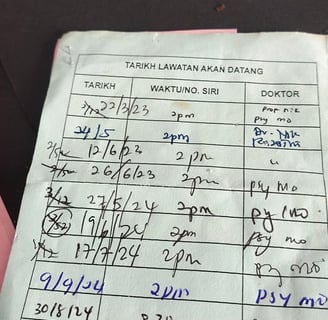 TARIKH LAWATAN AKAN DATANG
TARIKH WAKTU/NO. SIRI DOKTOR
3/12 22/3/23 2pm psy mo
24/5 2pm Dr.
2/52 12/6/23 2pm
2/52 26/6/23 2pm psy MO
3/12 27/5/24 2pm psy MO
3/52 19/6/24 2pm psy mo
1/12 17/7/24 2pm psy mo
9/9/24 2pm PSY MO
30/8/24